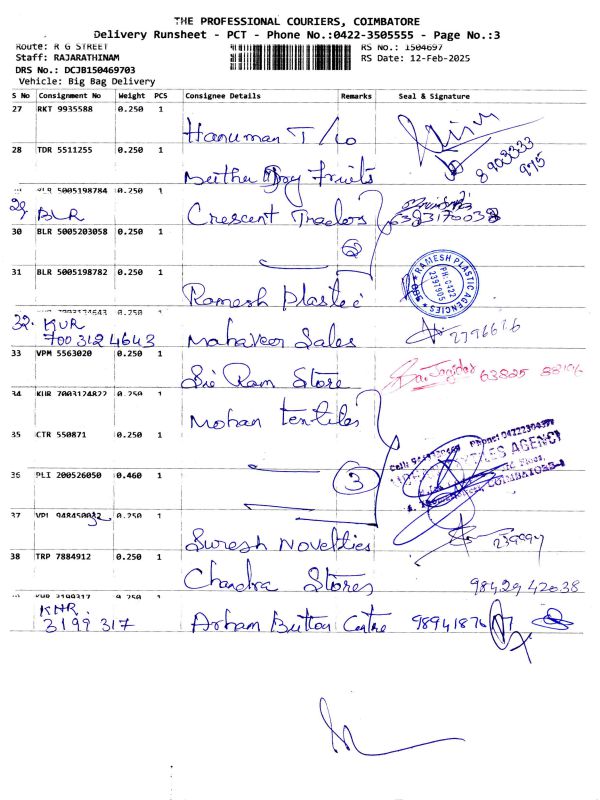 THE PROFESSIONAL COURIERS, COIMBATORE
Delivery Runsheet - PCT - Phone No.:0422-3505555 - Page No.:3
Route: R G STREET RS No.: 1504697
Staff: RAJARATHINAM RS Date: 12-Feb-2025
DRS No.: DCJB150469703
Vehicle: Big Bag Delivery
S No Consignment No Weight PCS Consignee Details Remarks Seal & Signature
27 RKT 9935588 0.250 1
Hanuman T/co
28 TDR 5511255 0.250 1
8903333
975
Fruits
BLR 5005198784 0.250 1
29 BLR Crescent Traders
30 BLR 5005203058 0.250 1
2
31 BLR 5005198782 0.250 1
RAMESH PLASTIC AGENCIES
PH:0422
2397905
Ramesh Plastic
7003124643 0.250 1
32. KUR
7003124643 Mahaveer Sales 2396616
33 VPM 5563020 0.250 1
Sri Ram Store
34 KUR 7003124822 0.250 1
Mohan Textiles
35 CTR 550871 0.250 1
Phone: 04222304377
COIMBATORE-1
36 PLI 200526050 0.460 1
3
37 VPL 948450032 0.250 1
Suresh Novelties
38 TRP 7884912 0.250 1
Chandra Stores 98429 42038
KNR 3199317 0.250 1
KNR.
3199317 Arham Button Centre